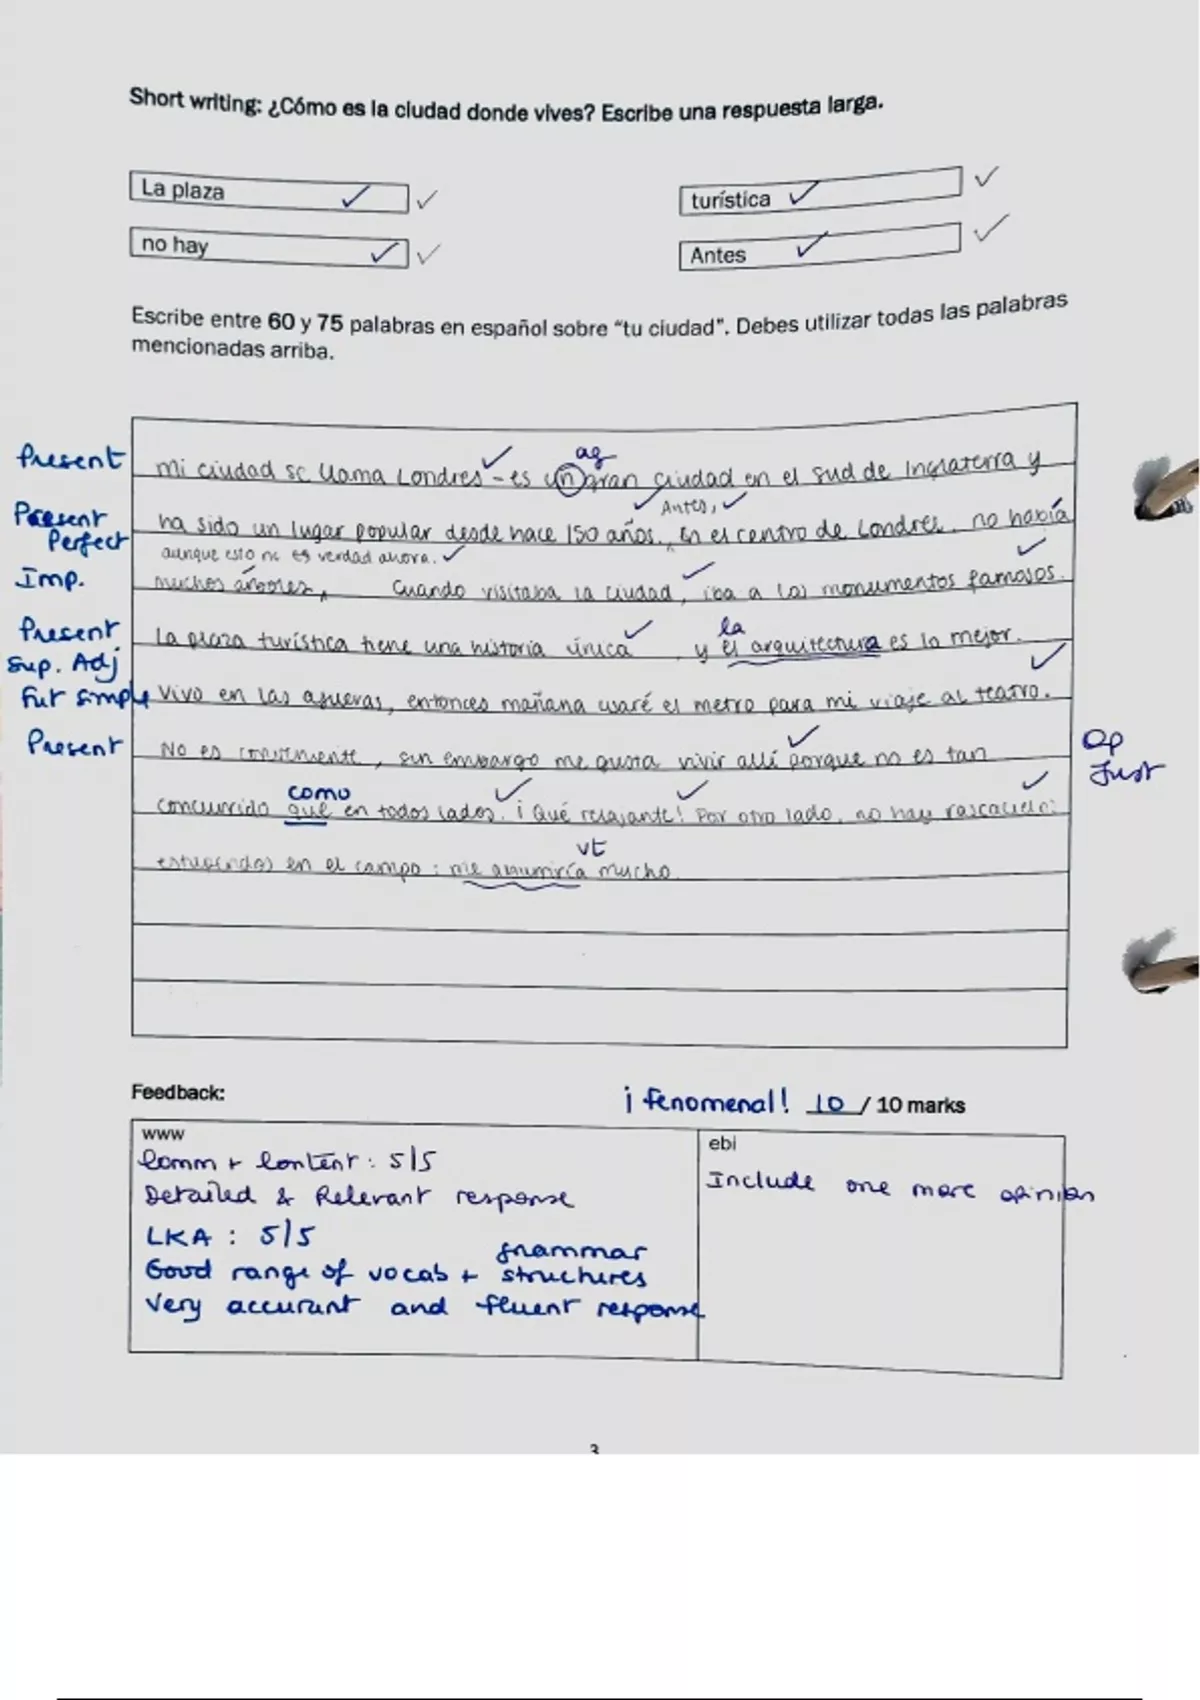 Short writing: ¿Cómo es la ciudad donde vives? Escribe una respuesta larga.
La plaza ✓ ✓
turística ✓ ✓
no hay ✓ ✓
Antes ✓ ✓
Escribe entre 60 y 75 palabras en español sobre "tu ciudad". Debes utilizar todas las palabras
mencionadas arriba.
ag
Present Mi ciudad se llama Londres - es un gran ciudad en el sud de Inglaterra y
Antes,
Present ha sido un lugar popular desde hace 150 años. En el centro de Londres, no había
Perfect aunque esto no es verdad ahora.
Imp. muchos árboles, Cuando visitaba la ciudad, iba a los monumentos famosos.
la
Present La plaza turística tiene una historia única y el arquitectura es lo mejor.
Sup. Adj
Fut simple Vivo en las afueras, entonces mañana usaré el metro para mi viaje al teatro.
Present No es conveniente, sin embargo me gusta vivir allí porque no es tan
Op
Just
como
concurrido que en todos lados. ¡Qué relajante! Por otro lado, no hay rascacielos
vt
estupendos en el campo: me aburriría mucho.
Feedback:
¡fenomenal! 10 / 10 marks
www
Comm + Content: 5/5
Detailed & Relevant response
LKA: 5/5
grammar
Good range of vocab + structures
Very and fluent response
ebi
Include one more opinion
3